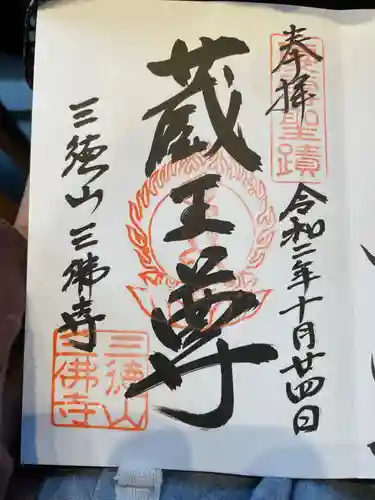 奉拝
蔵王尊
令和二年十月廿四日
三徳山三佛寺
三徳山
三佛寺